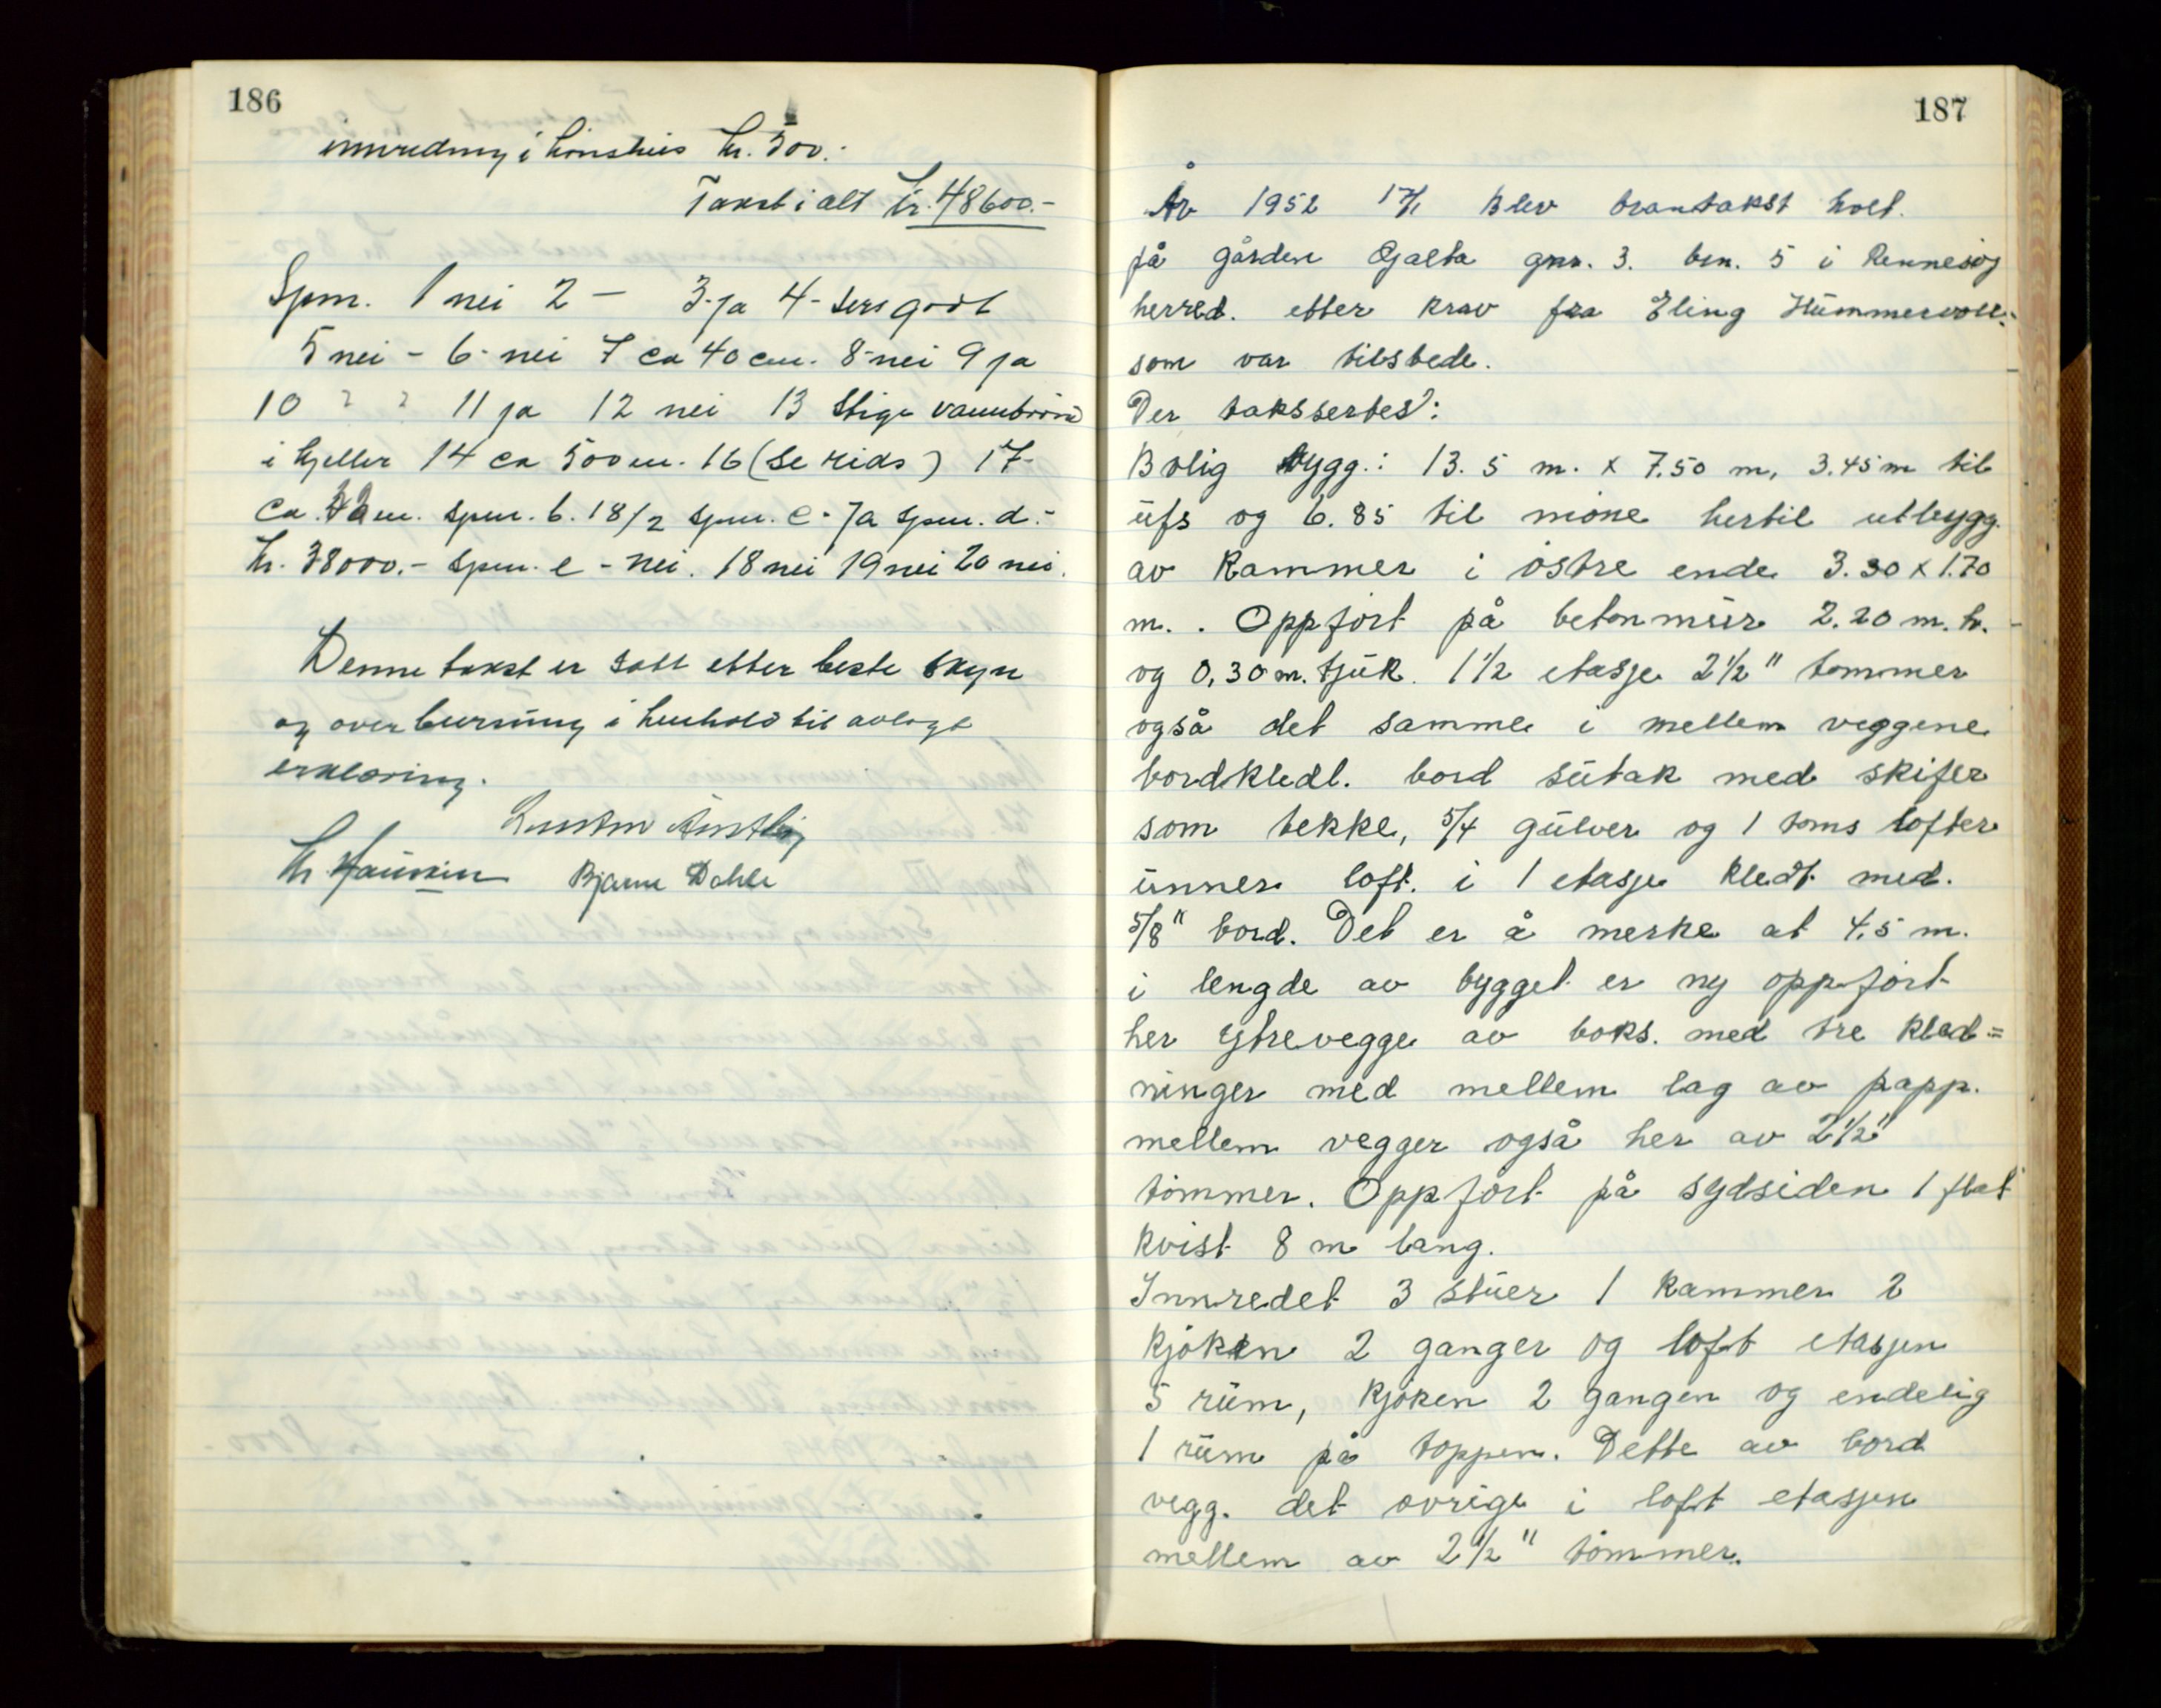 186
innredning i hønsehus kr. 500.-
Takst i alt kr. 48600.-
Spm. 1 nei 2 — 3-ja 4- sers godt
5 nei - 6- nei 7 ca 40 cm. 8- nei 9 ja
10 11 ja 12 nei 13 Stige vannbrønn
i kjeller 14 ca 500 m. 16 (se rids) 17-
ca. m. spm. b. 18/2 spm. c - ja spm. d.-
kr. 38000.- spm. e - nei. 18 nei 19 nei 20 nei.
Denne takst er satt etter beste skyn
og overbevising i henhold til avlagt
erklæring.
Bjarne Dahle
187
År 1952 17/1 Blev brantakst holt.
på gården Gjalta gnr. 3. bn. 5 i Rennesøy
herred. etter krav fra Eling Hummervoll.-
som var tilstede.
Der takssertes:
Bolig bygg.: 13.5 m. x 7.50 m, 3.45 m til
ufs og 6.85 til møne hertil utbygg.
av Kammer i østre ende 3.30 x 1.70
m. . Oppført på betonmur 2.20 m. h.
og 0,30 m. tjuk. 1 1/2 etasje 2 1/2" tømmer
også det samme i mellem veggene
bordkledt. bord sutak med skifer
som tekke, 5/4 gulver og 1 toms lofter
unner loft. i 1 etasje kledt med.
5/8" bord. Det er å merke at 4.5 m.
i lengde av bygget er ny oppført
her ytrevegge av boks. med tre kled=
ninger med mellem lag av papp.
mellem vegger også her av 2 1/2"
tømmer. Oppført på sydsiden 1 flat
kvist 8 m lang.
Innredet 3 stuer 1 kammer 2
kjøken 2 ganger og loft etasjen
5 rum, kjøken 2 gangen og endelig
1 rum på toppen. Dette av bord
vegg. det øvrige i loft etasjen
mellem av 2 1/2" tømmer.